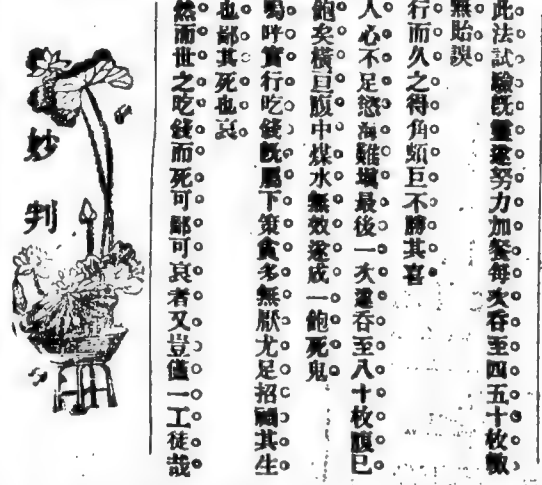 此法試驗既靈遂努力加餐每次吞至四五十枚
無貽誤
行而久之得角頗巨不勝其喜
人心不足慾海難填最後一次遂吞至八十枚腹已
飽矣橫亘腹中煤水無效遂成一飽死鬼
嗚呼實行吃錢既屬下策貪多無厭尤足招禍其生
也鄙其死也哀
然而世之吃錢而死可鄙可哀者又豈僅一工徒哉
妙判